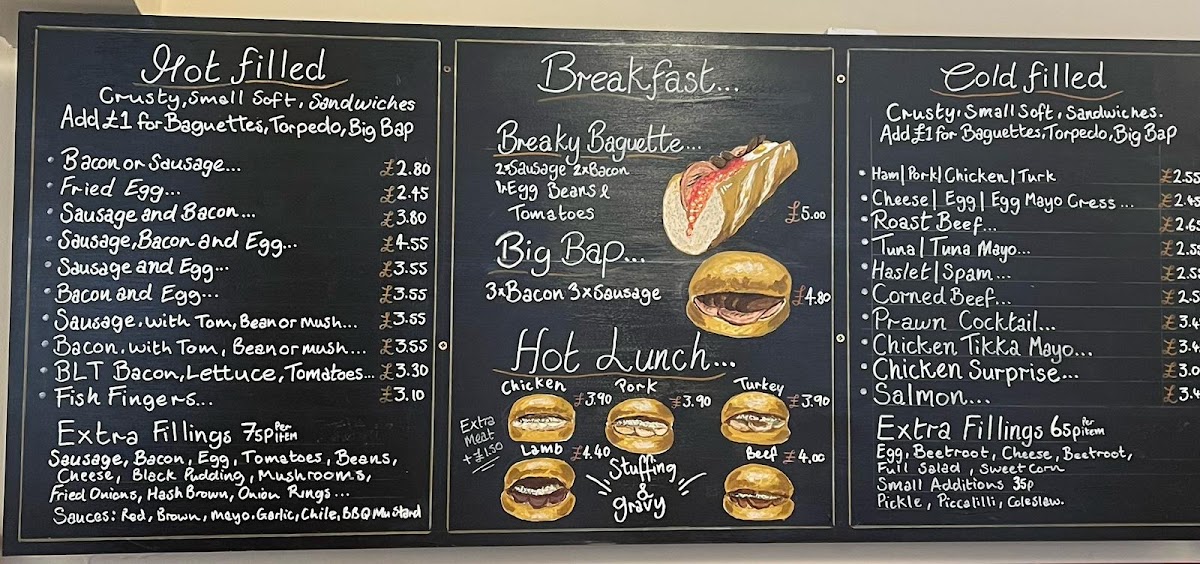 Hot filled
Crusty, Small Soft, Sandwiches
Add £1 for Baguettes, Torpedo, Big Bap
• Bacon or Sausage... £2.80
• Fried Egg... £2.45
• Sausage and Bacon... £3.80
• Sausage, Bacon and Egg... £4.55
• Sausage and Egg... £3.55
• Bacon and Egg... £3.55
• Sausage, with Tom, Bean or Mush... £3.55
• Bacon, with Tom, Bean or mush... £3.55
• BLT Bacon, Lettuce, Tomatoes... £3.30
• Fish Fingers... £3.10
Extra Fillings 75p Per item
Sausage, Bacon, Egg, Tomatoes, Beans,
Cheese, Black Pudding, Mushrooms,
Fried Onions, Hash Brown, Onion Rings...
Sauces: Red, Brown, Mayo. Garlic, Chile, BBQ Mustard
Breakfast...
Breaky Baguette...
2xSausage 2xBacon
1xEgg Beans &
Tomatoes
£5.00
Big Bap...
3xBacon 3xSausage £4.80
Hot Lunch...
Chicken £3.90
Pork £3.90
Turkey £3.90
Extra
Meat
+£1.50
Lamb £4.40
Beef £4.00
Stuffing
&
gravy
Cold filled
Crusty, Small Soft, Sandwiches.
Add £1 for Baguettes, Torpedo, Big Bap
• Ham|Pork|Chicken|Turk £2.55
• Cheese|Egg|Egg Mayo Cress... £2.45
• Roast Beef... £2.6
• Tuna|Tuna Mayo... £2.5
• Haslet|Spam... £2.5
• Corned Beef... £2.5
• Prawn Cocktail... £3.4
• Chicken Tikka Mayo... £3.4
• Chicken Surprise... £3.0
• Salmon... £3.4
Extra Fillings 65p Per item
Egg, Beetroot, Cheese, Beetroot,
Full Salad, Sweetcorn
Small Additions 35p
Pickle, Piccalilli, Coleslaw.